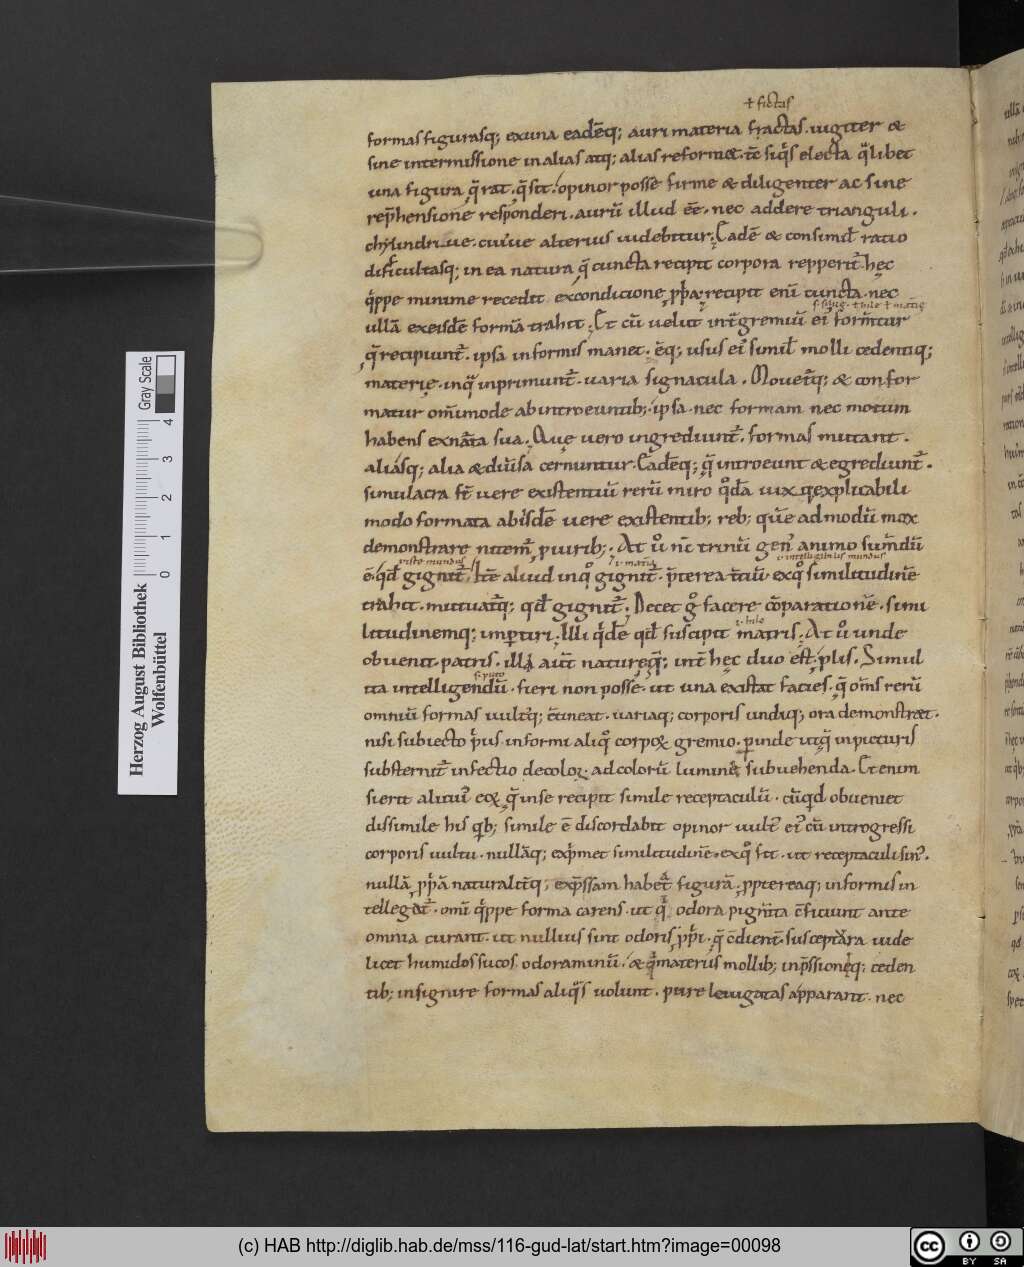 ł fictas
formas figurasq; ex una eadēq; auri materia fractas iugiter &
sine intermissione in alias atq; alias reformet. tc̄ siq̄s electa q̄libet
una figura q̄rat. q̄ sit. opinor posse firme & diligenter ac sine
rep̄hensione responderi. aurū illud ēē. nec addere trianguli.
chylindri ue. cui ue alterius uidebitur. Eadē & consimil̄ ratio
difficultasq; in ea natura quę cuncta recipit corpora repperit̄. hęc
q̄ppe minime recedit ex condicione p̄pa. recipit eni cuncta. nec
ullā ex eisdē formā trahit. Et cū uelut int̄ gremiū ei formtur
quę recipiunt̄. ipsa informis manet. ēq; usus ei simil̄ molli cedentiq;
materię. in qua inprimunt̄ uaria signacula. Mouet̄q; & confor
matur om̄imode ab introeuntib; ipsa. nec formam nec motum
habens ex nāta sua. Quę uero ingrediunt̄. formas mutant.
aliasq; alia & diūsa cernuntur. Eadēq; quę introeunt & egrediunt̄.
simulacra st̄ uere existentiū rerū miro q̄dā uix q; explicabili
modo formata ab isdē uere existentib; reb; quē ad modū mox
demonstrare nitem̄ pturib; At ů nc̄ trinū gen̄ animo sum̄dū
iste mundus i. intelligibilis mundus
ē. qd̄ gignit̄. itē aliud in quo gignit̄. p̄terea tciū ex quo similitudinē
trahit. mutuat̄q; qd̄ gignit̄. Decet g̊ facere cōparationē. simi
litudinemq; impertiri. Illi q̄dē qd̄ suscipit matris. At ů unde
obuenit patris. illi aūt naturęq; int̄ hęc duo est. plis. Simul
ita intelligendū. fieri non posse. ut una existat facies. quę om̄s rerū
omniū formas uultq; cōtineat. uariaq; corporis undiq; ora demonstret.
nisi subiecto p̄us informi aliquo corpoꝝ gremio. perinde ut quę in picturis
substernit̄ infectio decolor. ad colorū luminā subuehenda. Et enim
si erit alicui eoꝝ quę in se recipit simile receptaculū. cū quid obueniet
dissimile his quib; simile ē discordabit opinor uult̄ ei cū introgressi
corporis uultu. nullāq; exp̄met similitudinē. ex quo fit. ut receptaculi sin.
nullā p̄pā naturalitq; exp̄ssam habet figurā. p̄ptereaq; informis in
tellegat̄. omi q̄ppe forma carens. ut q̄ odora pigm̄ta c̄ficiunt ante
omnia curant. ut nullius sint odoris p̄pi. quę c̄dient susceptura uide
licet humidos sucos odoraminū. & q̄ materiis mollib; inp̄ssioneq; ceden
tib; insignire formas aliq̄s uolunt. pure leuigatas apparant. nec
Herzog August Bibliothek
Wolfenbüttel
0 1 2 3 4
Gray Scale
(c) HAB http://diglib.hab.de/mss/116-gud-lat/start.htm?image=00098
cc BY SA